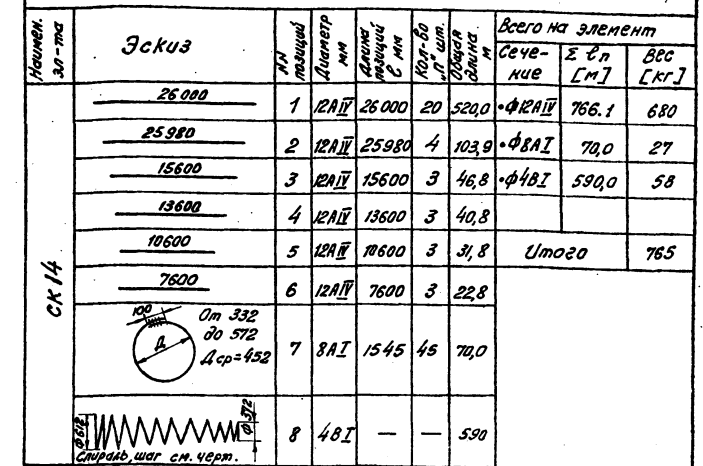 Наимен. эл-та
Эскиз
NN позиций
Диаметр мм
Длина позиций ℓ мм
Кол-во "п" шт.
Общая длина м
Всего на элемент
Сечение
Σ ℓп [м]
Вес [кг]
СК 14
26000 1 12АIV 26000 20 520,0 •Ф12АIV 766.1 680
25980 2 12АIV 25980 4 103,9 •Ф8АI 70,0 27
15600 3 12АIV 15600 3 46,8 •Ф4ВI 590,0 58
13600 4 12АIV 13600 3 40,8
10600 5 12АIV 10600 3 31,8 Итого 765
7600 6 12АIV 7600 3 22,8
100 Д От 332
до 572
Дср=452
7 8АI 1545 45 70,0
Ф612 Ф372 8 4ВI — — 590
Спираль, шаг см. черт.